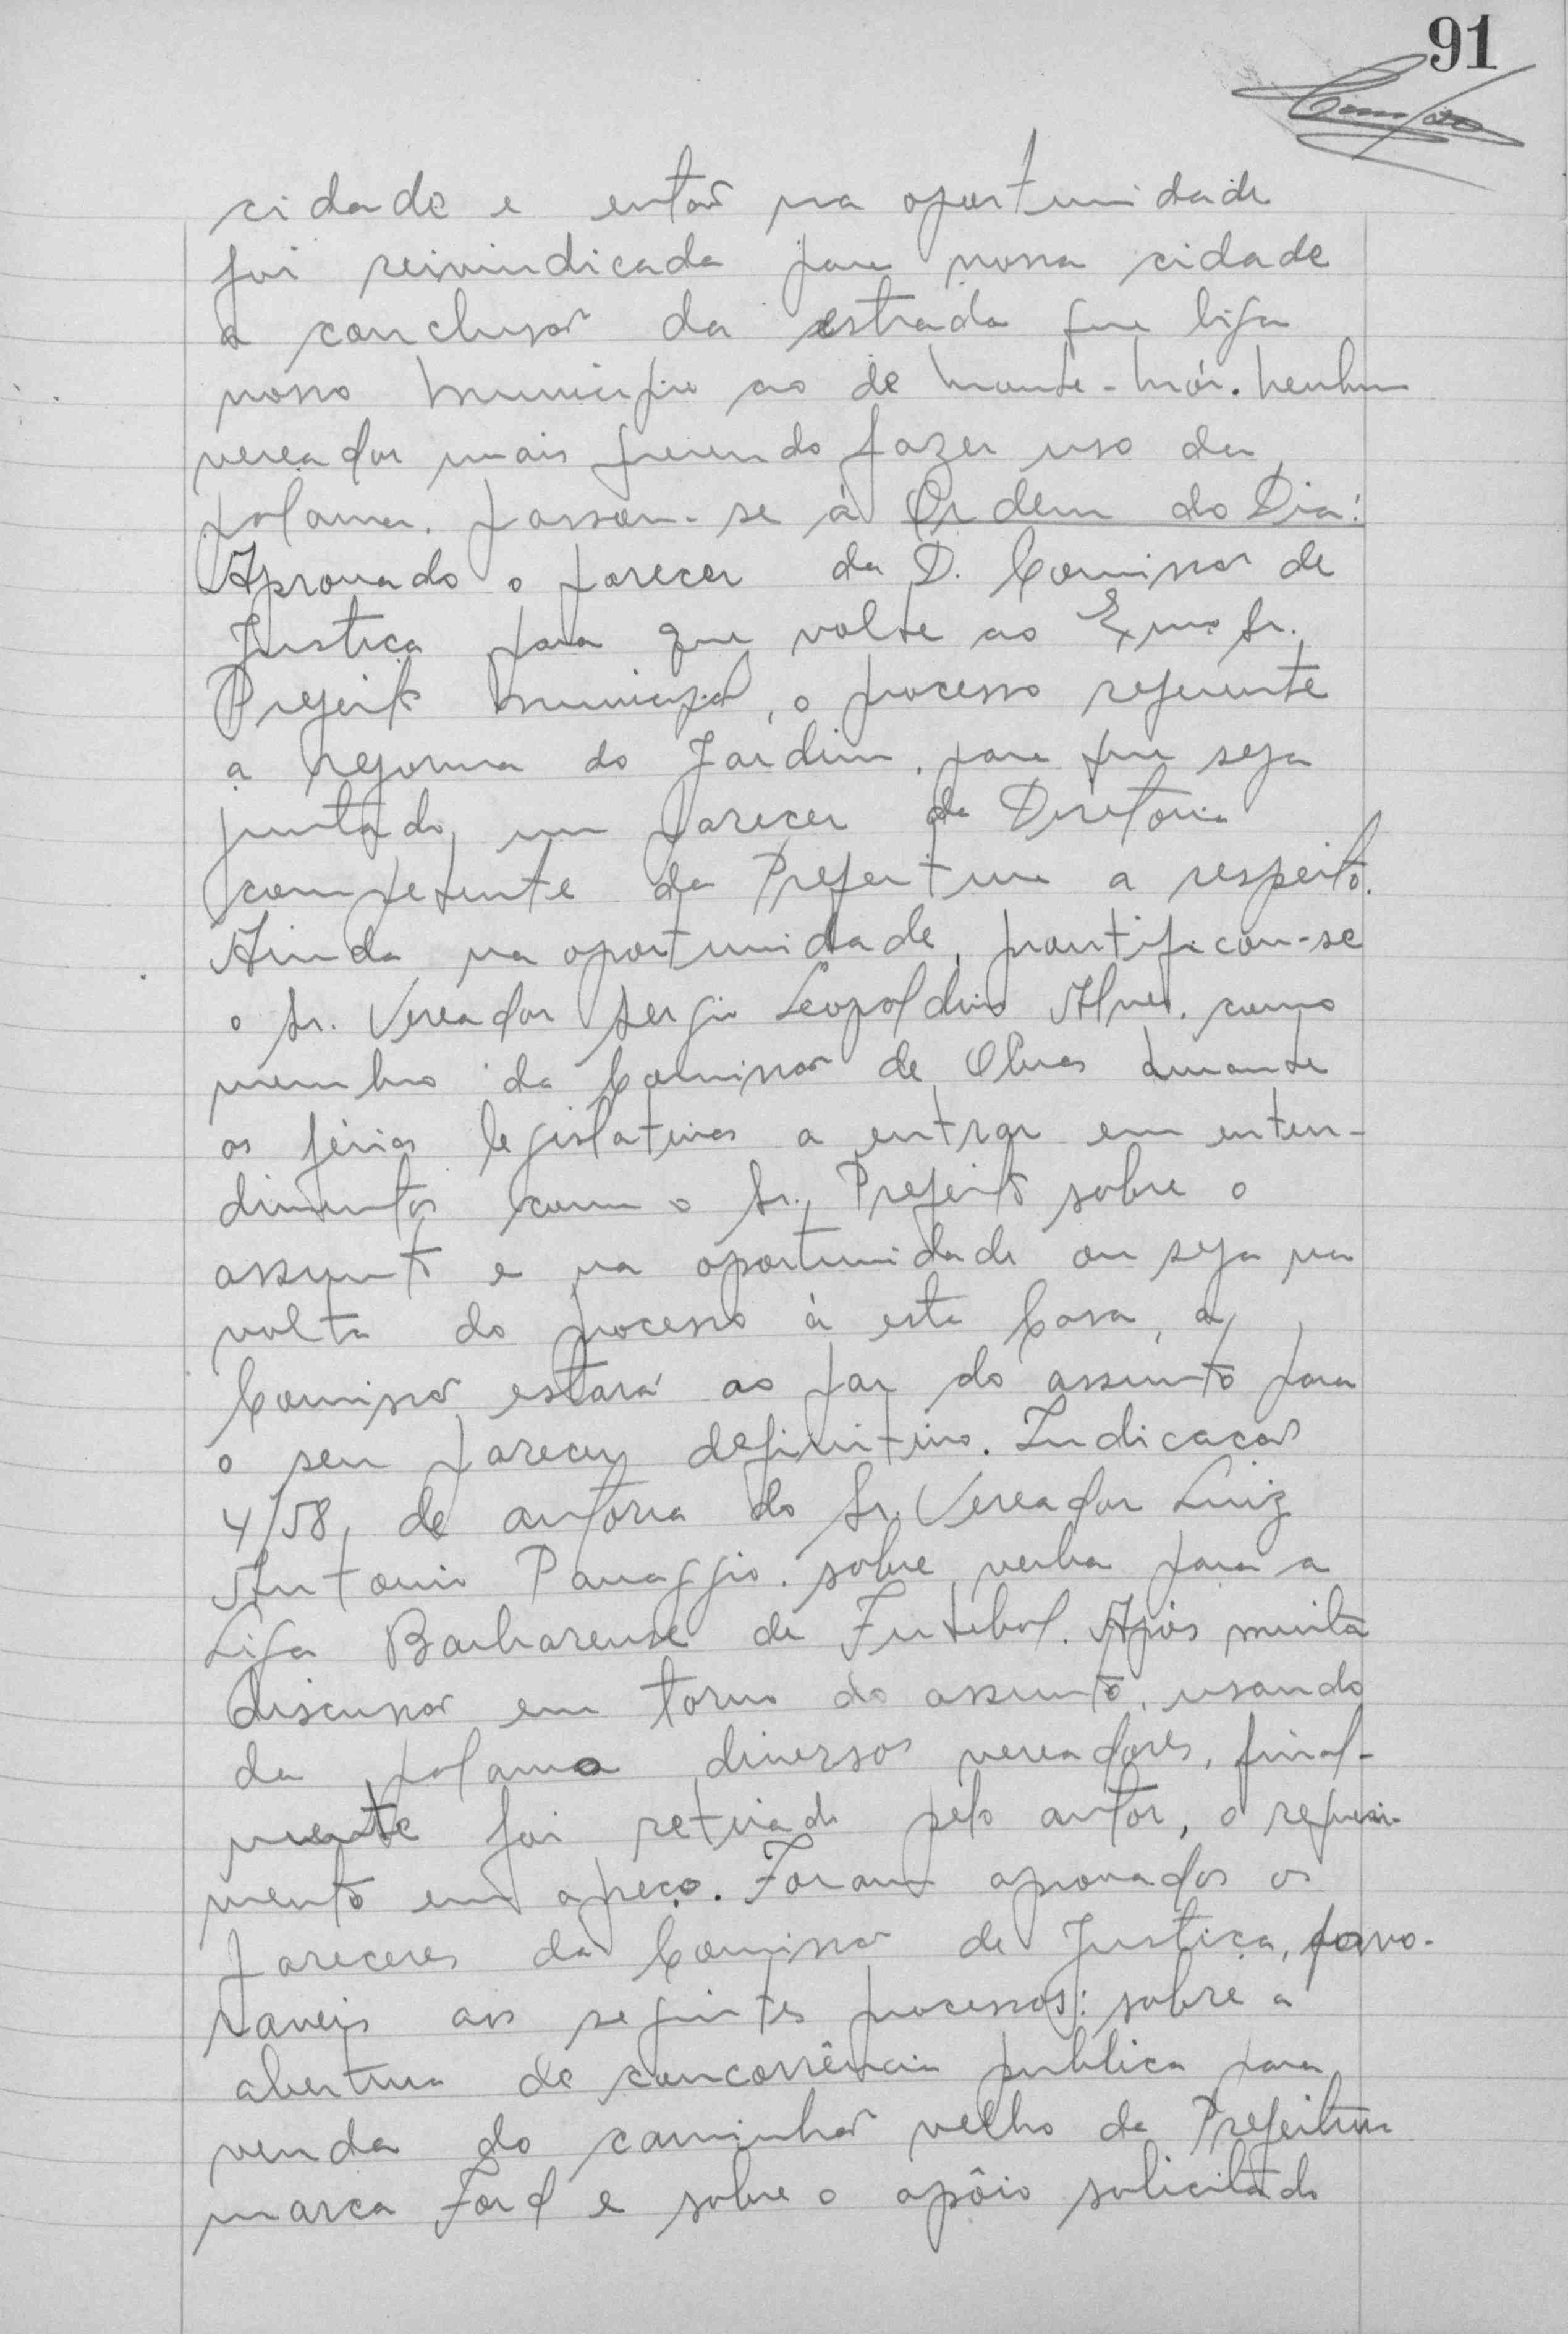 91
cidade e então na oportunidade
foi reivindicada para nossa cidade
a conclusão da estrada que liga
nosso Municipio ao de Monte-Mór. Nenhum
vereador mais querendo fazer uso da
palavra. passou-se á Ordem do Dia:
Aprovado o parecer da D. Comissão de
Justiça para que volte ao Exmo Sr.
Prefeito Municipal, o processo referente
a reforma do Jardim, para que seja
juntado, um parecer da Diretoria
competente da Prefeitura a respeito.
Ainda na oportunidade, prontificou-se
o Sr. Vereador Sergio Leopoldino Alves. como
membro da Comissão de Obras durante
as férias legislativas a entrar em enten-
dimentos com o Sr. Prefeito sobre o
assunto e na oportunidade ou seja na
volta do processo á esta Casa, a
Comissão estará ao par do assunto para
o seu parecer definitivo. Indicação
4/58, de autoria do Sr. Vereador Luiz
Antonio Panaggio. sobre verba para a
Liga Barbarense de Futebol. Após muita
discussão em torno do assunto, usando
da palavra diversos vereadores, final-
mente foi retirado pelo autor, o requeri-
mento em apreço. Foram aprovados os
pareceres da Comissão de Justiça, favo-
raveis aos seguintes processos: sobre a
abertura de concorrência publica para
venda do caminhão velho da Prefeitura
marca Ford e sobre o apôio solicitado